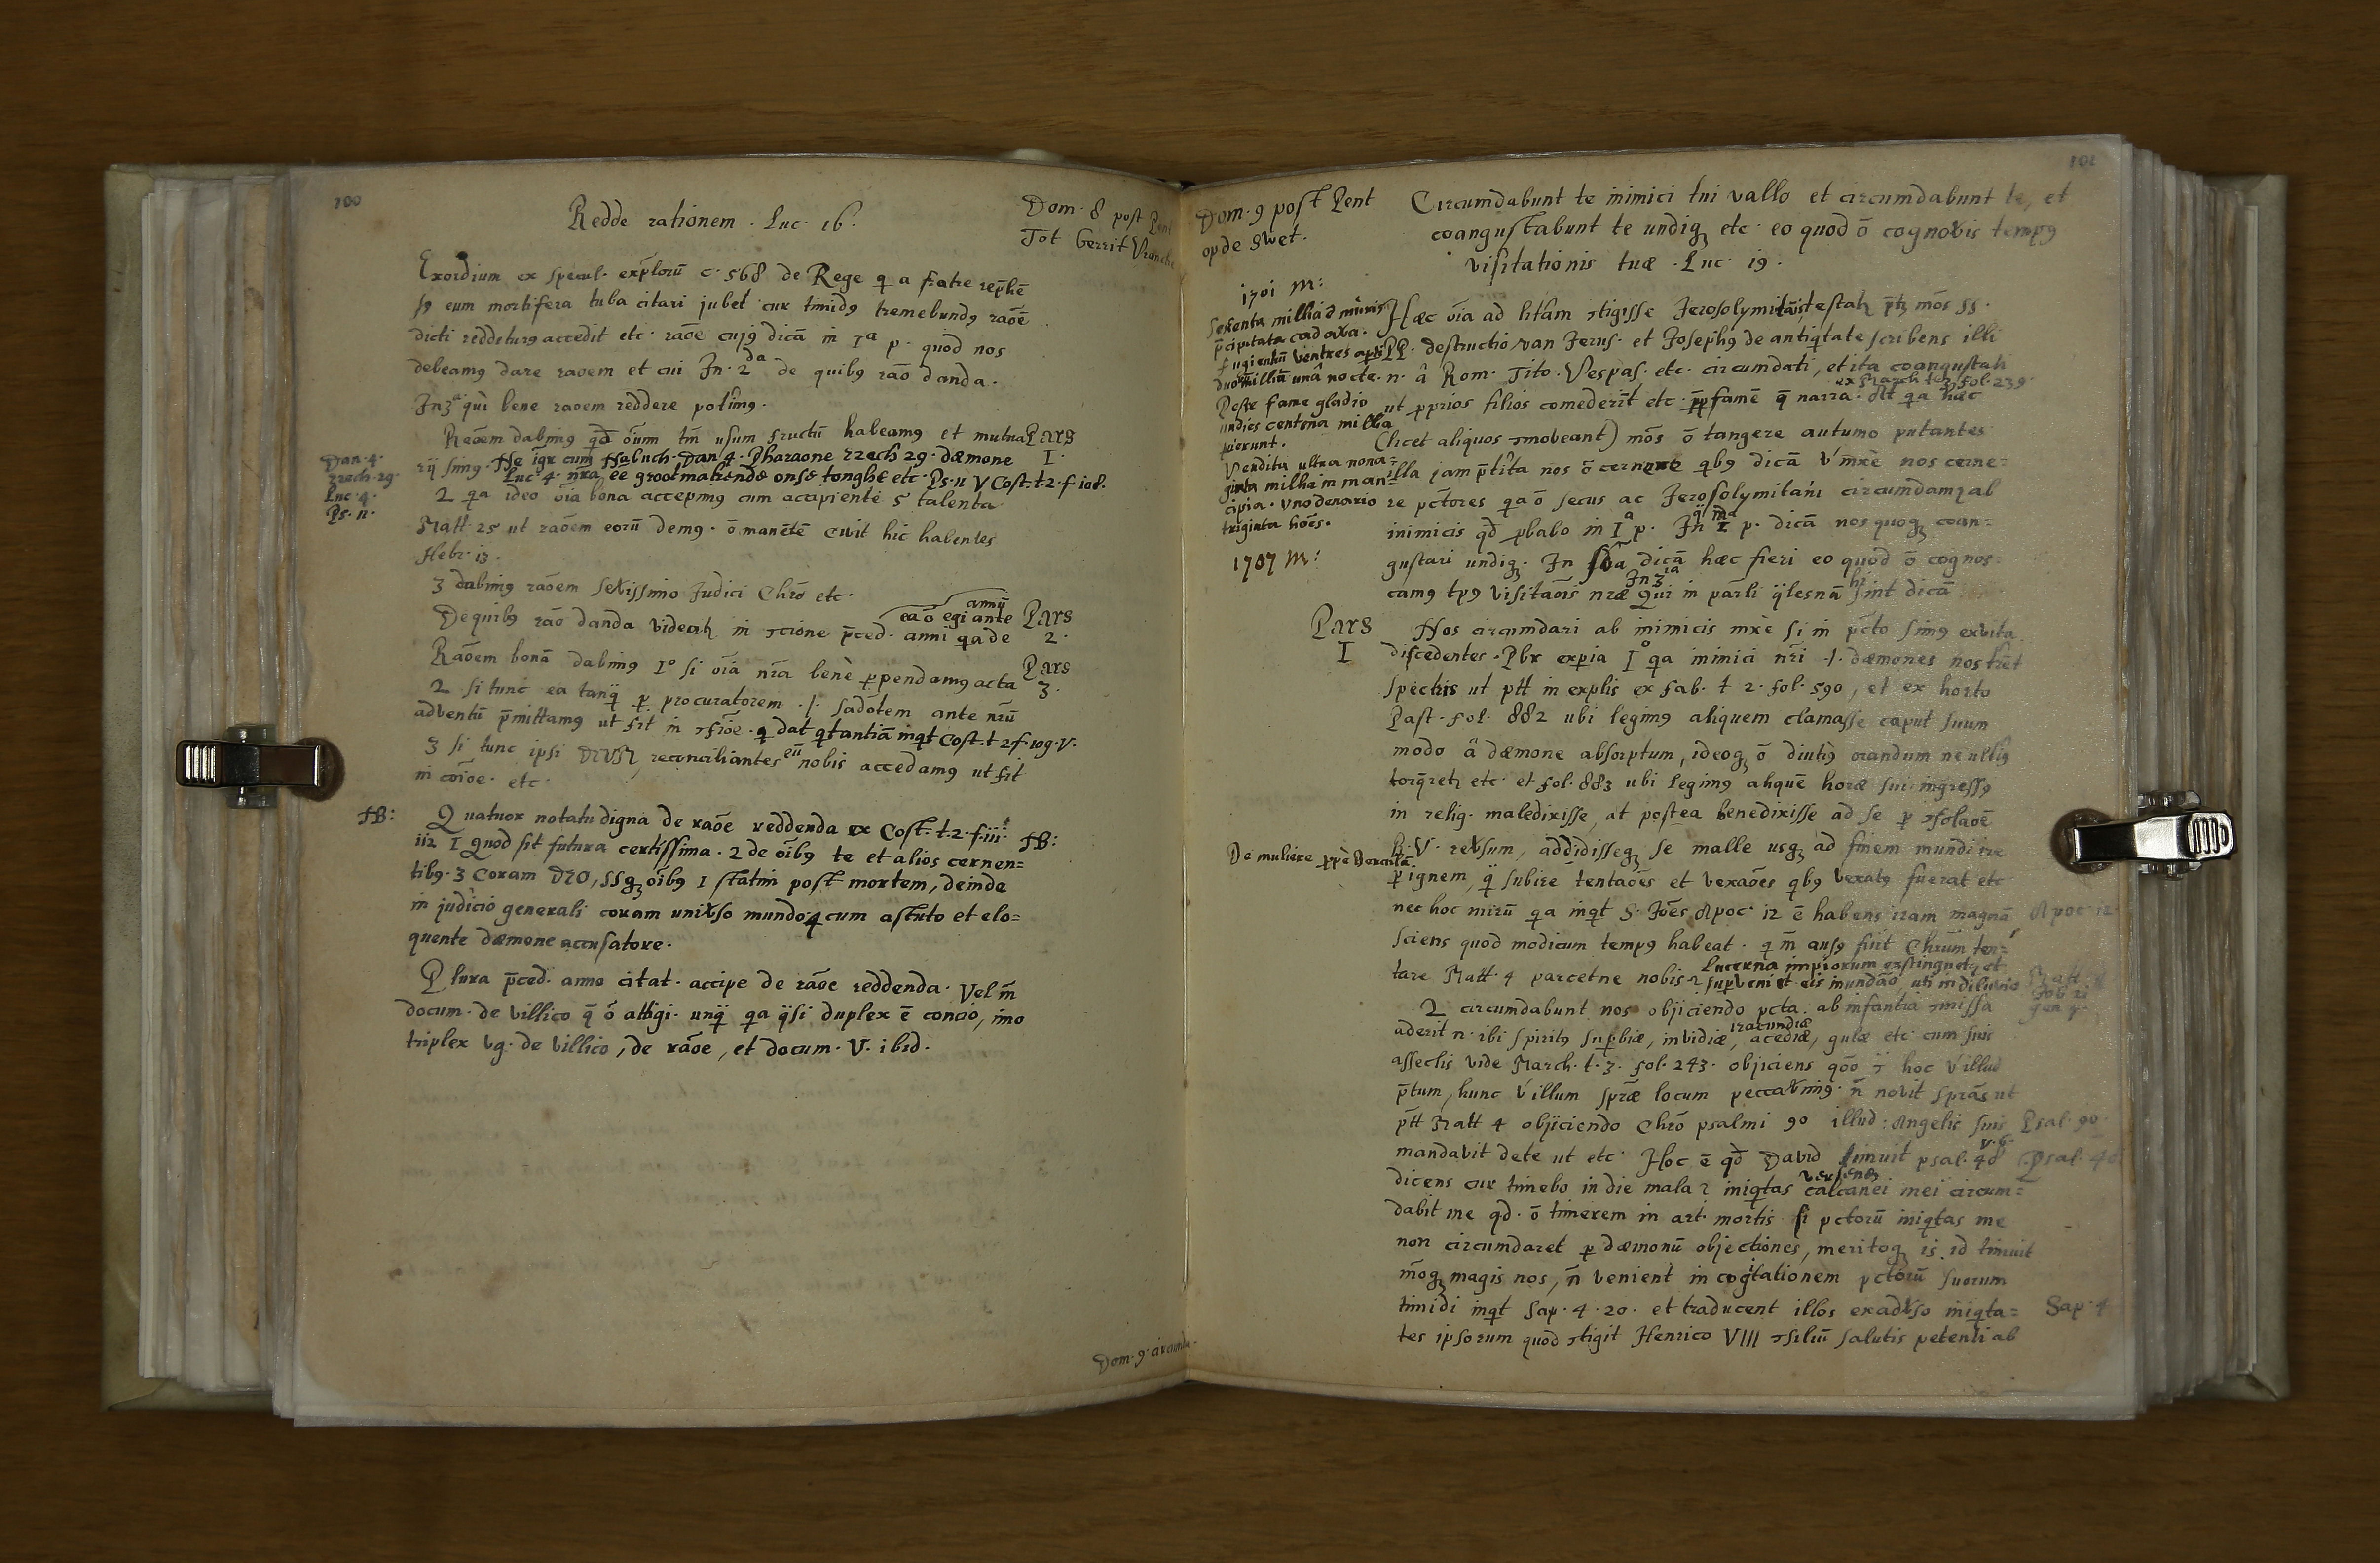 100
Redde rationem . Luc. 16.
Dom. 8 post Pent
Tot Gerrit Vranche
Exordium ex specul. explorū c. 568 de Rege q a fratre reṗhē
sꝯ eum mortifera tuba citari jubet cur timidꝯ tremebundꝯ raōē
dicti redditurꝯ accedit etc. raōe cujꝯ dicā in 1ª p. quod nos
debeamꝯ dare raoem et cui In. 2da de quibꝯ rāo danda.
In 3ª qui bene raoem reddere potimꝯ.
Raōem dabimꝯ qd̄ ōium tm̄ usum fructū habeamꝯ et mutua
Pars
1.
rij simꝯ. Ne igr cum Nabuch. Dan 4. Pharaone Ezech 29. dæmone
Luc 4. nr̄a ēē groot makende onse tonghe etc. Ps. 11 V Cost. t. 2. f. 108.
Dan. 4.
Ezech. 29.
Luc. 4.
Ps. 11.
2 qa ideo oīa bona accepimꝯ cum accipiente 5 talenta
Matt. 25 ut raōem eorū demꝯ. ō manētē cuit hic habentes
Hebr. 13.
3 dabimꝯ raōem seƲissimo Judici Chrō etc.
De quibꝯ rāo danda videatꝝ in ꝯcione p̄ced. anni qa de
ea ō egi ante
annū
Pars
2.
Raōem bonā dabimꝯ 1º si oīa nr̄a benè ꝑpendamꝯ acta
Pars
3.
2 si tunc ea tanq̄ ꝑ procuratorem .|. sadotem ante nr̄ū
adventū p̄mittamꝯ ut fit in ꝯfiōe. q dat qtantiā inqt Cost. t 2 f. 109. V.
3 si tunc ipsi DEUM, reconciliantes eū nobis accedamꝯ ut fit
in coiōe. etc.
NB: Quatuor notatu digna de raōe reddenda ex Cost. t. 2. f. 111. NB:
112 1 Quod sit futura certissima. 2 de oībꝯ te et alios cernen=
tibꝯ. 3 Coram DEO, SSqꝫ oībꝯ 1 statim post mortem, deinde
in judicio generali coram uniƲso mundo. 4 cum astuto et elo=
quente dæmone accusatore.
Plura p̄ced. anno citat. accipe de rāoe reddenda. Vel m̄
docum. de Villico q̄ ō attigi. unq̄ qa q̄si duplex ē concio, imo
triplex vg. de Villico, de rāoe, et docum. V. ibid.
Dom. 9. circumda.
101
Dom. 9 post Pent
op de Swet.
Circumdabunt te inimici tui vallo et circumdabunt te, et
coangustabunt te undiqꝫ etc. eo quod ō cognoVis tempꝯ
visitationis tuæ . Luc. 19.
1701 M:
Sexenta millia d muris
p̄cipitata cadaVa.
fugientiū ventres apti
duo milliū unâ nocte.
Peste fame gladio
undies centena millia
pierunt.
Vendita ultra nona=
ginta millia in man=
cipia. Uno denario
triginta hōēs.
1707 M:
Hæc oīa ad litām ꝯtigisse Jerosolymitānis testatꝝ p̄tꝝ mōs SS.
PP. destructio van Jerus. et Josephꝯ de antiqtate scribens illi
n. â Rom. Tito. Vespas. etc. circumdati, et ita coangustati
ex March. t. 3. fol. 239.
ut ꝓprios filios comederīt etc. ꝓpp famē q̄ narra. At qa hæc
(licet aliquos ꝯmoveant) mōs ō tangere autumo putantes
illa jam p̄tita nos ō cernere qbꝯ dicā V mxè nos cerne=
re pctores qa ō secus ac Jerosolymitani circumdamꝝ ab
inimicis qd̄ ꝓbabo in 1ª p. In 2da p. dicā nos quoqꝫ coan=
gustari undiqꝫ. In 3a dicā hæc fieri eo quod ō cognos=
camꝯ tpꝯ visitaōis nræ Qui in parti q̄lesnā hi sint dicā
Pars
1
Nos circumdari ab inimicis mxè si in pcto simꝯ ex vita
discedentes. Pbr expia 1º qa inimici nr̄i .|. dæmones nos tr̄et
spectris ut ptt in explis ex fab. t 2. fol. 590, et ex horto
Past. fol. 882 ubi legimꝯ aliquem clamasse caput suum
modo â dæmone absorptum, ideoqꝫ ō diutiꝯ orandum ne ultiꝯ
torq̄retꝝ etc. et fol. 883 ubi legimꝯ aliquē horæ sui ingressꝯ
in relig. maledixisse, at postea benedixisse ad se ꝑ ꝯsolaōē
B. V. reƲsum, addidisseqꝫ se malle usqꝫ ad finem mundi ire
De muliere
ꝑ ignem, q̄ subire tentaōēs et vexaōēs qbꝯ vexatꝯ fuerat etc
nec hoc mirū qa inqt S. Joēs Apoc. 12 ē habens iram magnā
Apoc. 12.
sciens quod modicum tempꝯ habeat. q m̄ ausꝯ fuit Chrūm ten=
tare Matt. 4 parcetne nobis? Lucerna impiorum exstinguetꝝ et
supveniet eis inundāo uti in diluvio
Matt. 4
Job 21
Gen 7.
2 circumdabunt nos objiciendo pcta ab infantia ꝯmissa
aderit n. ibi Spiritꝯ Supbiæ, invidiæ, iracundiæ acediæ, gulæ etc cum suis
asseclis vide March. t. 3. fol. 243. objiciens qōō ī hoc V illud
p̄tum, hunc V illum sp̄ræ locum peccaƲimꝯ. n̄ novit sp̄rās ut
ptt Matt 4 objiciendo Chrō psalmi 90 illud: Angelis suis
Psal. 90
mandavit de te ut etc. Hoc ē qd̄ David timuit psal. 48 v. 6.
Psal. 48
dicens cur timebo in die mala? iniqtas calcanei mei circum=
dabit me qd. ō timerem in art. mortis si pctorū iniqtas me
non circumdaret ꝑ dæmonū objectiones, meritoqꝫ is id timuit
m̄oqꝫ magis nos, n̄ venient in cogitationem pctorū suorum
timidi inqt Sap. 4. 20. et traducent illos ex adƲso iniqta=
Sap. 4
tes ipsorum quod ꝯtigit Henrico VIII ꝯsiliū salutis petenti ab